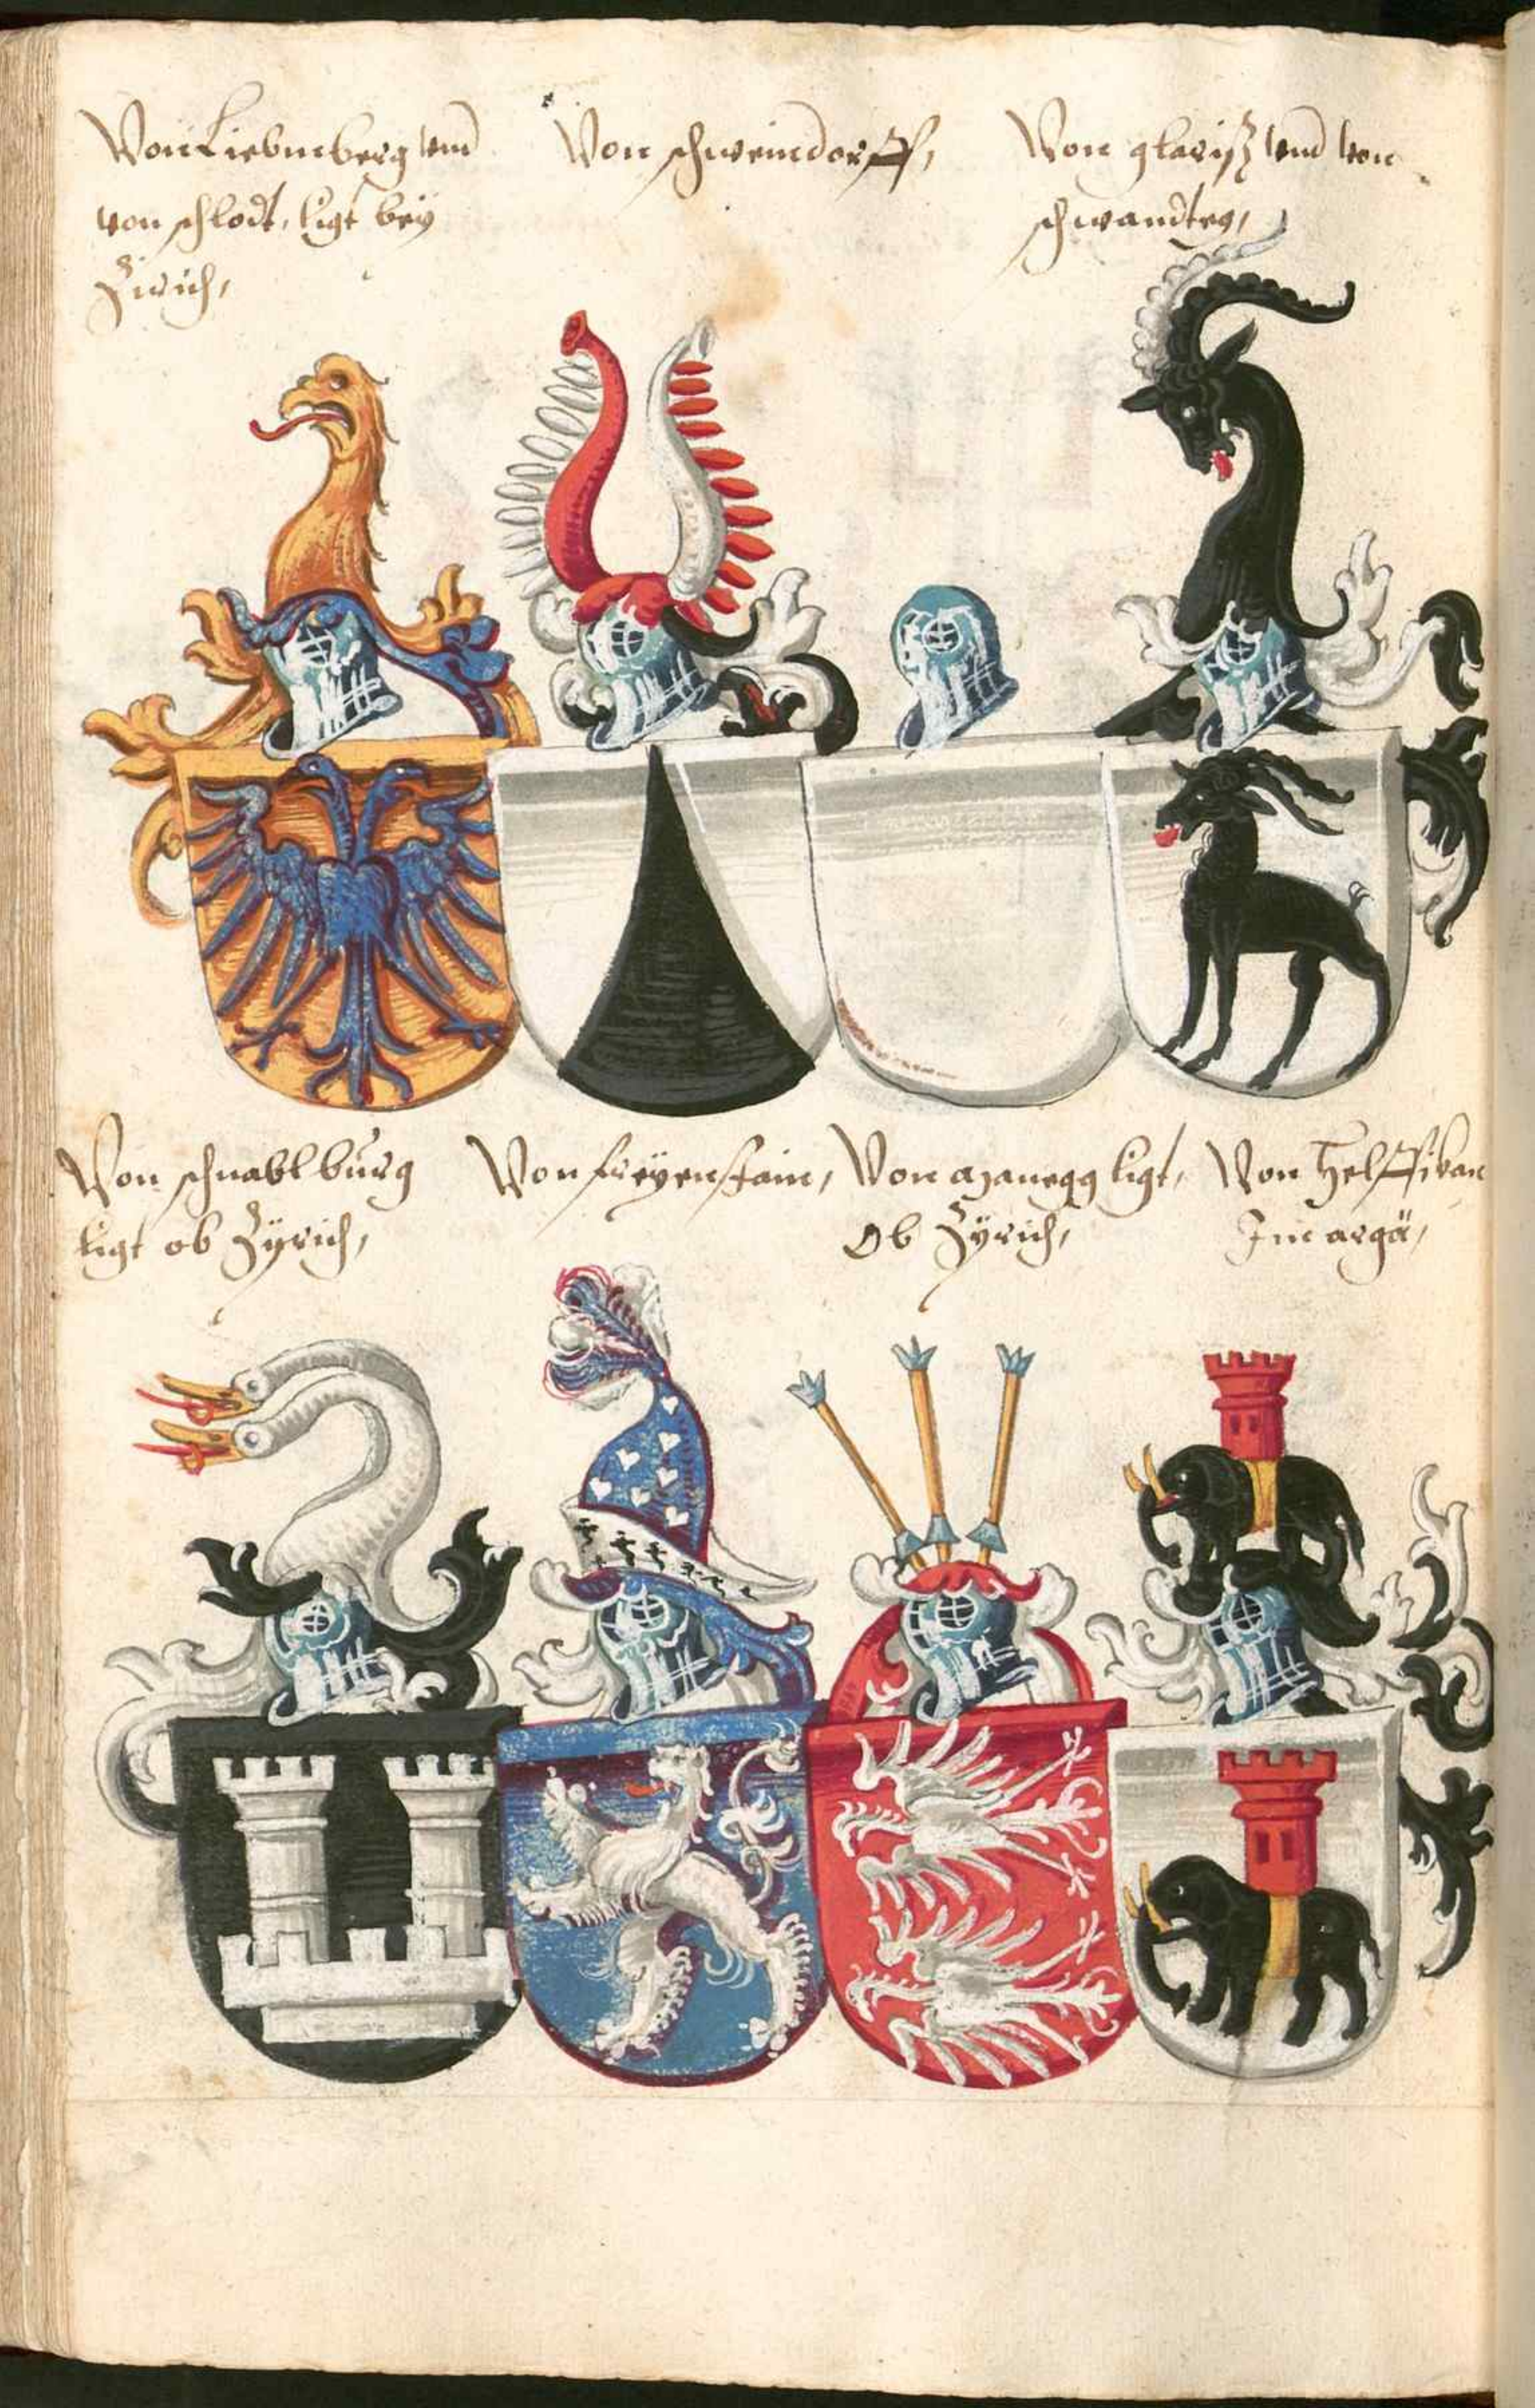 Von Liebmberg vnd
von schlodt, ligt bey
Zirich,
Von schweindorff,
Von glariß vnd von
schwandten,
Von schnablburg
ligt ob Zÿrich,
Von freyenstain,
Von Manegg ligt,
Ob Zÿrich,
Von Helffikan
Im argä,